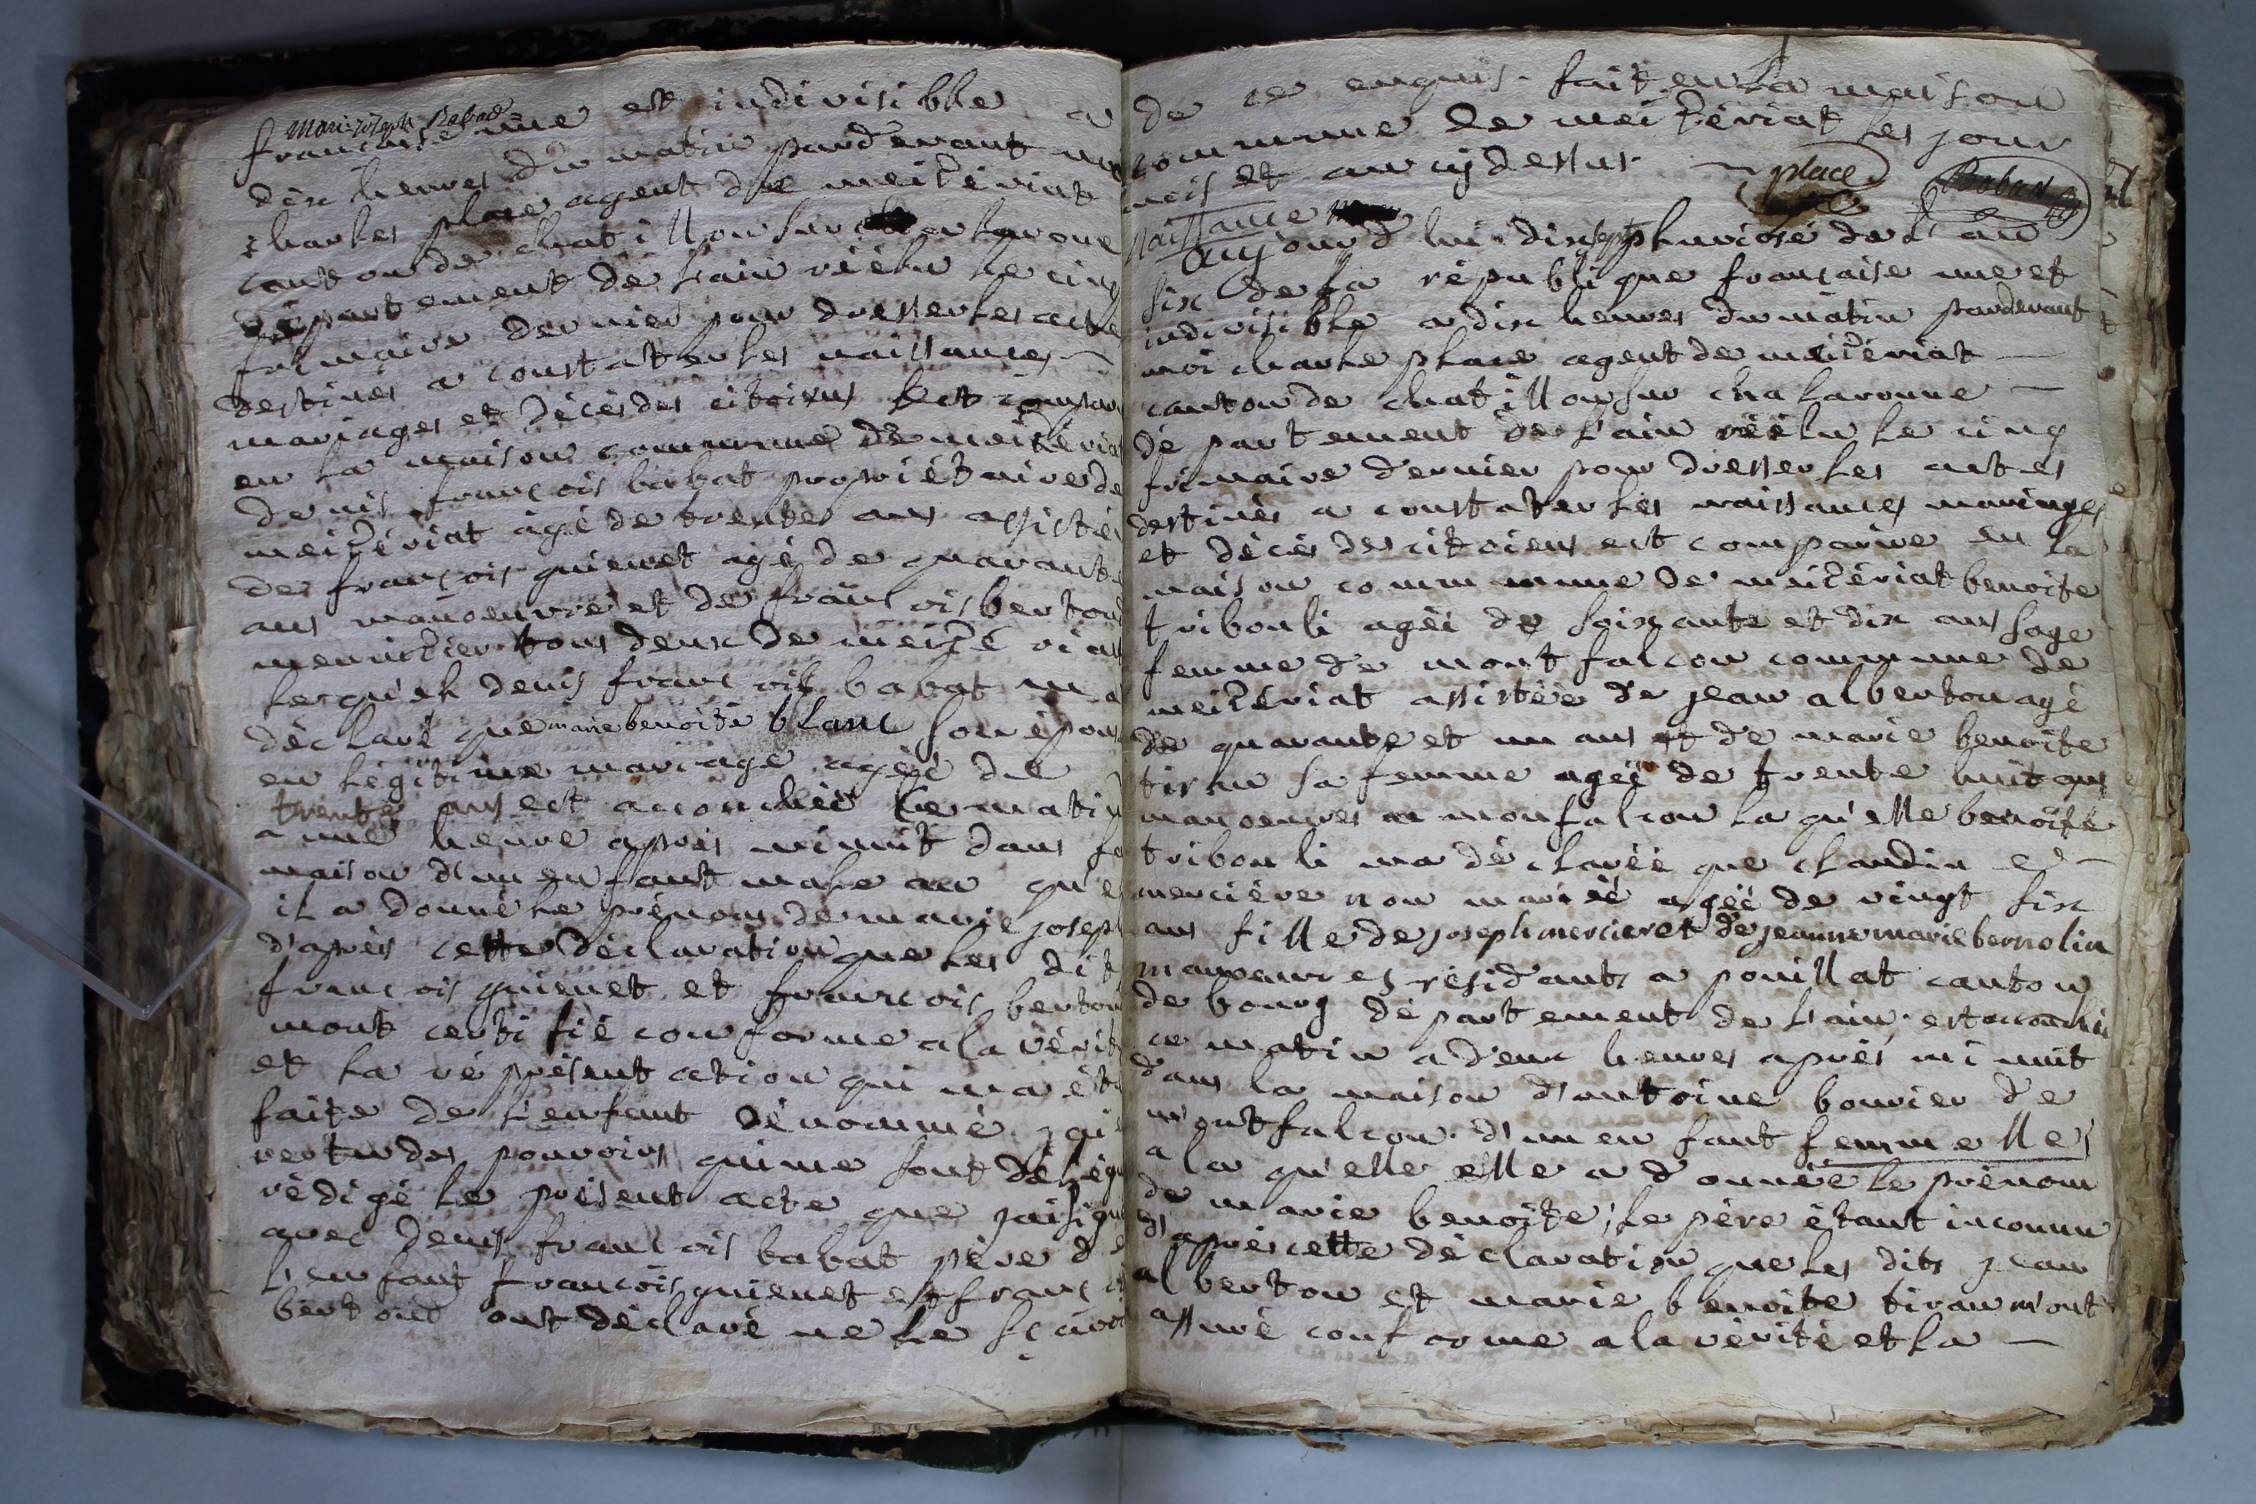 Marie joseph Babad
francaise une est indivisible a
dix heures du matin pardevant moi
charles place agent de meiteriat
canton de chatillon sur chalaronne
département de l'ain réélu le cinq
frimaire dernier pour dresser les acte
destines a constater les naissances
mariages et décès des citoiens est compar
en la maison commune de meiteriat
denis francois babat propriétaire de
meitériat agé de trente ans assisté
de francois guienet agé de quarante
ans manoeuvre et de francois bertoud
menusier tous deux de meité riat
lesquel denis francois babat m a
déclaré que marie benoite blanc son épous
en légitime mariage agéé de
trente ans est accouchéé ce matin
a une heure après minuit dans sa
maison d'un enfant male au quel
il a donné le prénom de marie joseph
d'après cette déclaration que les dit
francois guienet et francois bertoud
mont certifié conforme a la vérité
et la représentation qui ma été
faite de l'enfant dénommé j'ai en
vertu des pouvoirs qui me sont délégu
rédigé le présent acte que j'ai signé
avec denis francois babat père de
l'enfant francois guienet et franc ois
bertoud ont déclaré ne le sçavoir
de ce enquis. fait en la maison
commune de meitériat les jour
mois et an cy dessus. place Babad
Naissance
aujourd'hui dixsept pluviose de l'an
six de la république française une et
indivisible a dix heures du matin pardevant
moi charle place agent de meitériat
canton de chatillon sur chalaronne
département de l'ain réélu le cinq
frimaire dernier pour dresser les actes
destinés a constater les naissances mariages
et décès des citoiens est comparue en la
maison commune de meitériat benoite
tribouli agéé de soixante et dix ans sage
femme de montfalcon commune de
meitériat assistéé de jean alberton agé
de quarante et un ans et de marie benoite
tiran sa femme agéé de trente huit ans
manoeuvres a monfalcon la qu'elle benoite
tribouli ma déclaréé que claudine
mercière non mariéé agéé de vingt six
ans fille de joseph mercier et de jeanne marie bernolin
manoeuvres résidants a pouillat canton
de bourg département de l'ain est accouchéé
ce matin a deux heures après minuit
dans la maison d'antoine bouvier de
montfalcon d'un enfant femmelle
a la qu'elle elle a donnéé le prénom
de marie benoite, le père étant inconnu
d'après cette déclaration que les dits jean
alberton et marie benoite tiran m'ont
assuré conforme a la vérité et la